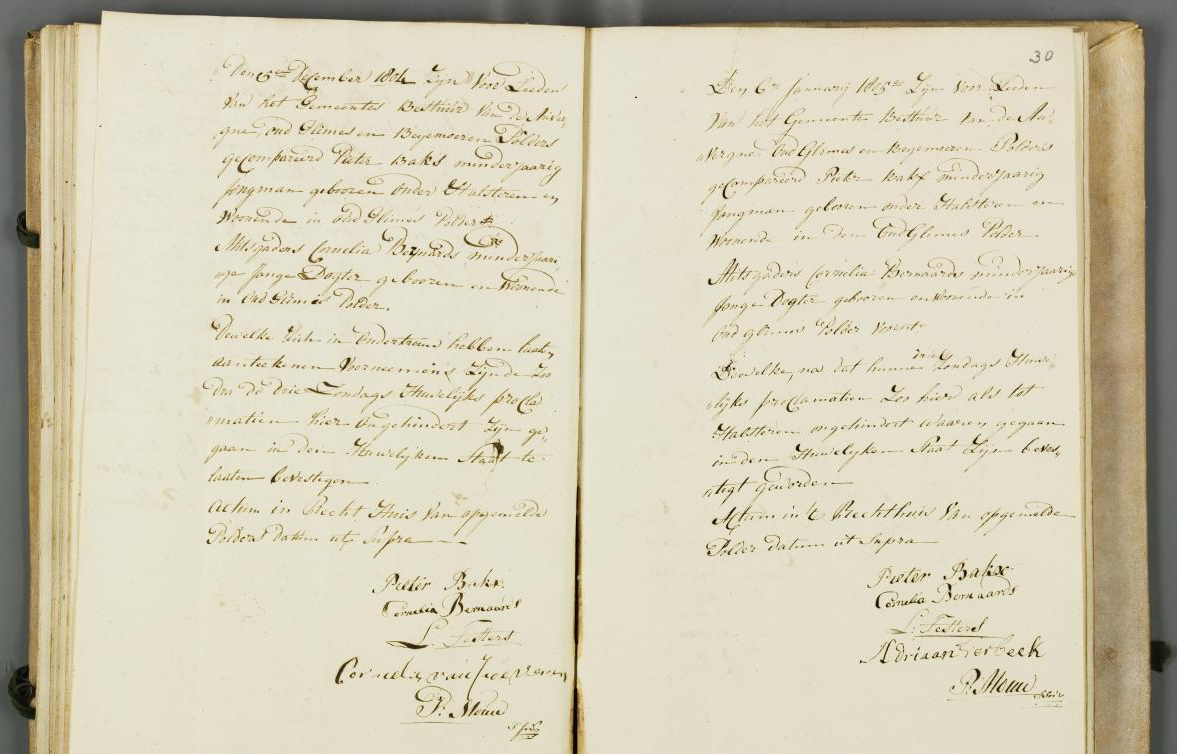 Den 15de December 1804 Zijn Voor Leeden
Van het Gemeentes Bestuur Van de Auver„
„gne, oud Glimes en Beymoeren Polders
gecompareerd Pieter Baks minderjaarig
Jongman gebooren onder Halsteren en
Woonende in oud Glimes Polder
Mitsgaders Cornelia Bernards minderjaari
„ge Jonge Dogter gebooren en Woonende
in oud Glimes Polder.
Dewelke Zich in Ondertrouw hebben laaten
aanteekenen Voorneemens Zijnde Zoo
dra de drie Zondags Huwelijks procla
„matien hier ongehindert Zijn ge„
gaan in den Huwelijken Staat te
laaten bevestigen
Actum in Recht Huis Van opgemelde
Polders datum ut Supra
Pieter Bakx
Cornelia Bernaards
L. Festers
Cornelis van
P. Mouw
30
Den 6de Januarij 1805 Zijn Voor Leeden
Van het Gemeente Bestuur Van de Au„
„Vergne Oud Glimes en Beymoeren Polders
gecompareerd Pieter Bakx minderjaarig
Jongman gebooren onder Halsteren en
Woonende in den Oud Glimes Polder
Mitsgaders Cornelia Bernaards minderjaarige
Jonge Dogter gebooren en Woonende in
Oud glimes Polder
Dewelke, na dat hunne drie Zondags Huwe„
„lijks proclamatien Zoo hier als tot
Halsteren ongehindert waaren gegaan
in den Huwelyken Staat Zijn beves„
„tigt geworden
Actum in 't Rechthuis Van opgemelde
Polder datum ut Supra
Pieter Bakx
Cornelia Bernaards
L. Festers
Adriaan Verbeek
P. Mouw